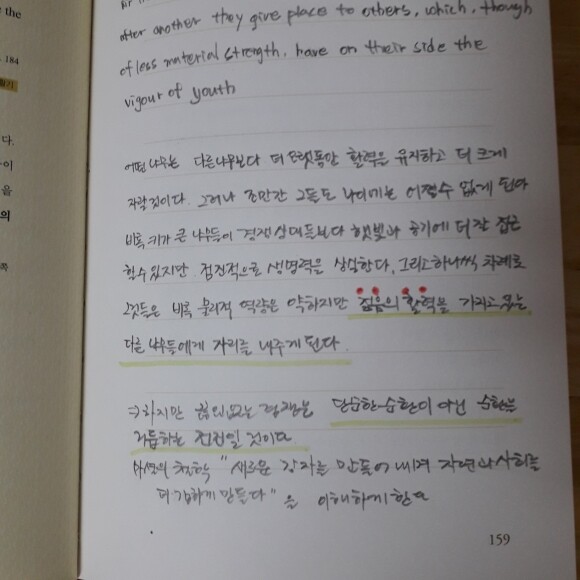 the
184
다.
을
의
after another they give place to others, which, though
of less material strength, have on their side the
vigour of youth
어떤 나무는 다른 나무보다 더 오랫동안 활력을 유지하고 더 크게
자랄 것이다. 그러나 조만간 그들도 나이에는 어쩔 수 없게 된다
비록 키가 큰 나무들이 경쟁 상대들보다 햇빛과 공기에 더 잘 접근
할 수 있지만 점진적으로 생명력을 상실한다. 그리고 하나씩 차례로
그것들은 비록 물리적 역량은 약하지만 젊음의 활력을 가지고 있는
다른 나무들에게 자리를 내주게 된다.
⇒ 하지만 끊임없는 경쟁은 단순한 순환이 아닌 순환을
거듭하는 전진일 것이다.
"새로운 강자를 만들어 내며 자연과 사회를
더 강하게 만들다"을 이해하게 한다
159